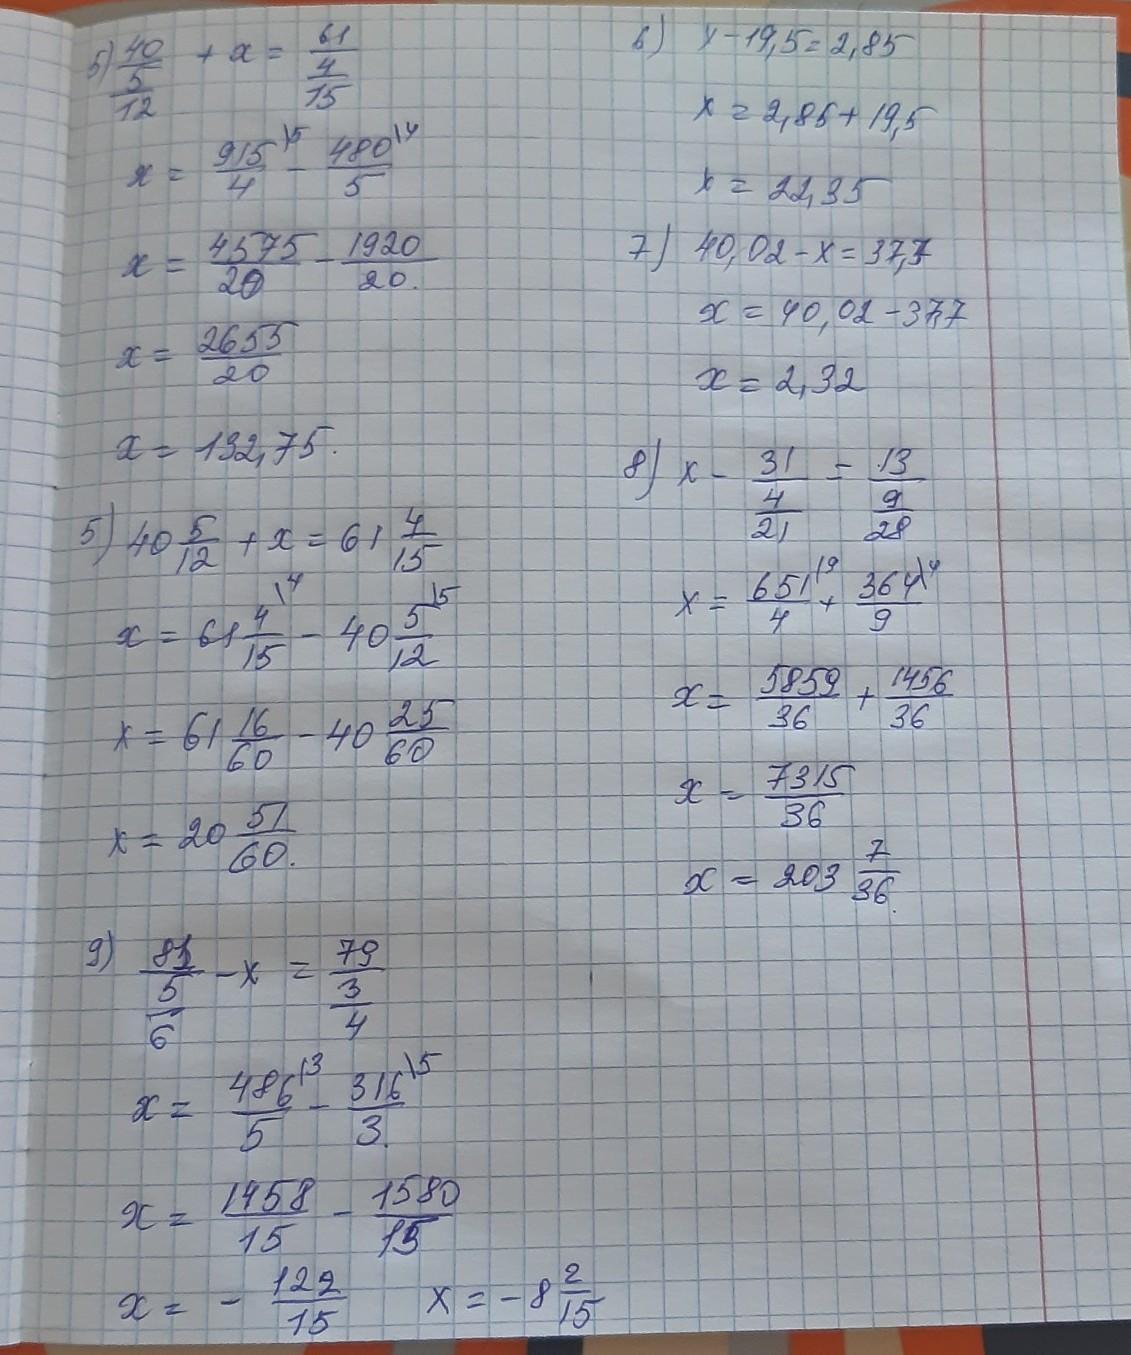 5) 40/(5/12) + x = 61/(4/15)
x = 915/4 \5 - 480/5 \4
x = 4575/20 - 1920/20.
x = 2655/20
x = 132,75.
5) 40 5/12 + x = 61 4/15
x = 61 4/15 \4 - 40 5/12 \5
x = 61 16/60 - 40 25/60
x = 20 51/60.
9) 81/(5/6) - x = 79/(3/4)
x = 486/5 \3 - 316/3. \5
x = 1458/15 - 1580/15
x = - 122/15 x = -8 2/15
6) x - 19,5 = 2,85
x = 2,85 + 19,5
x = 22,35
7) 40,02 - x = 37,7
x = 40,02 - 37,7
x = 2,32
8) x - 31/(4/21) = 13/(9/28)
x = 651/4 \9 + 364/9 \4
x = 5859/36 + 1456/36
x = 7315/36
x = 203 7/36.